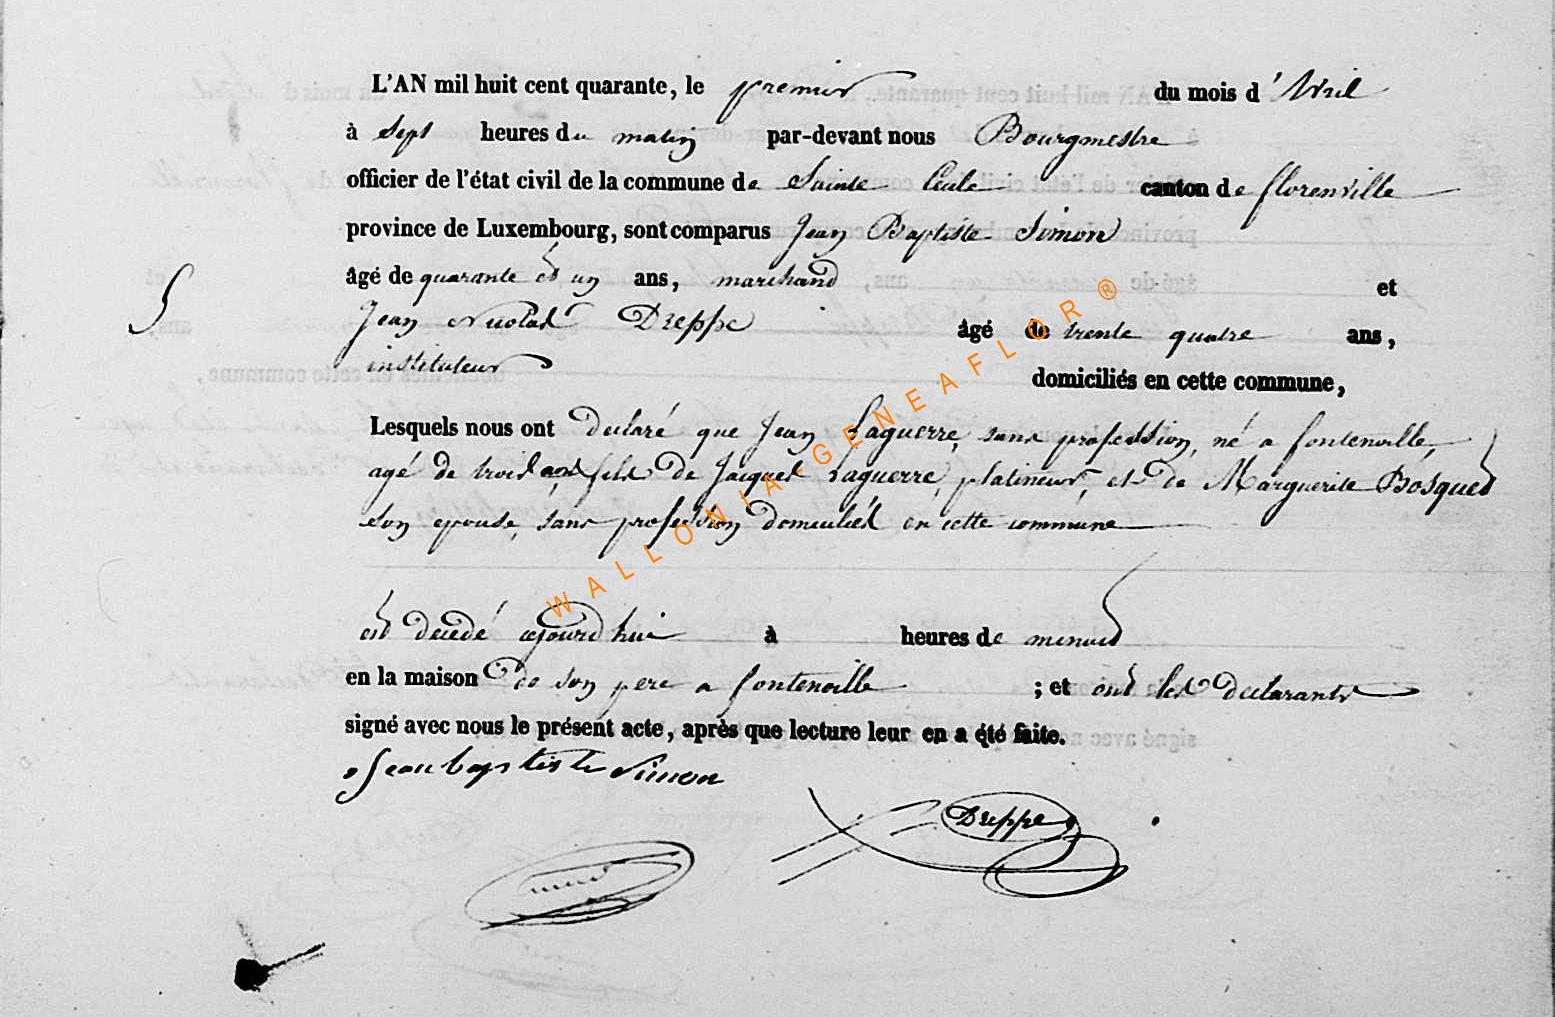 L'AN mil huit cent quarante, le premier du mois d'Avril
à Sept heures du matin par-devant nous Bourgmestre
officier de l'état civil de la commune de Sainte Cecile canton de florenville
province de Luxembourg, sont comparus Jean Baptiste Simon
âgé de quarante et un ans, marchand et
5
Jean Nicolas Dreppe âgé de trente quatre ans,
instituteur
domiciliés en cette commune,
Lesquels nous ont declaré que Jean Laguerre, sans profession, né a fontenoille,
agé de trois ans, fils de Jacques Laguerre, platineur, et de Marguerite Bosquet
son epouse, sans profession domiciliés en cette commune
est decedé aujourd'hui à heures de minuit
en la maison de son pere a fontenoille ; et ont les declarants
signé avec nous le présent acte, après que lecture leur en a été faite.
Jean baptiste Simon
Dreppe
WALLONIA-GENEAFLOR®